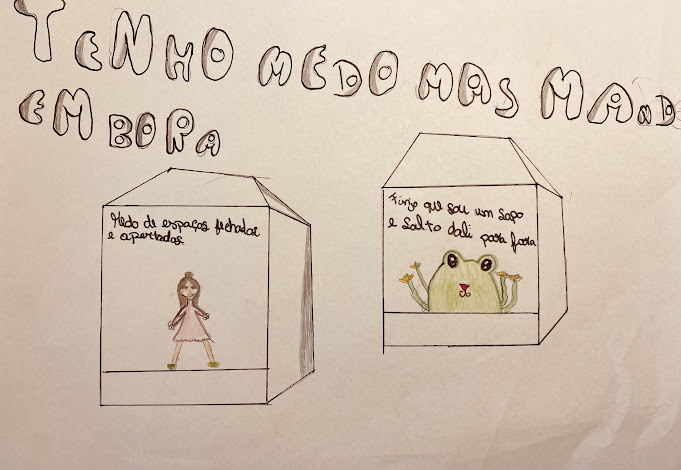 TENHO MEDO MAS MAND
EMBORA
Medo de espaços fechados
e apertados.
Finjo que sou um sapo
e salto dali para fora